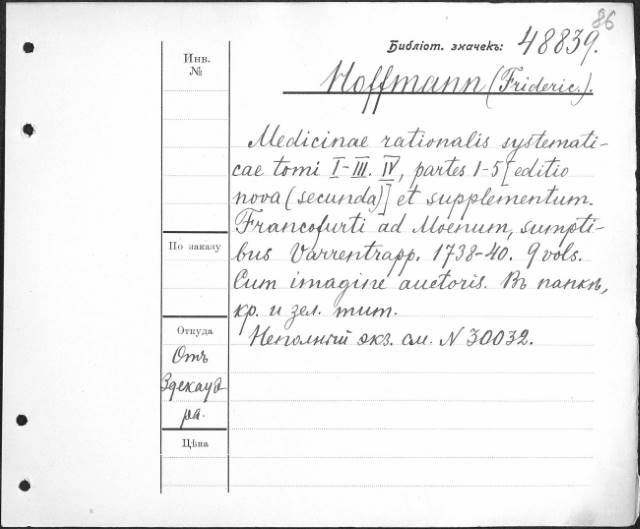 86
Библіот. значекъ: 48839.
Инв.
№
Hoffmann (Frideric.).
Medicinae rationalis systemati-
cae tomi I-III. IV, partes 1-5 [editio
nova (secunda)] et supplementum.
Francofurti ad Moenum, sumpti-
bus Varrentrapp. 1738-40. 9 vols.
Cum imagine auctoris. Въ папкѣ,
кр. и зел. тит.
Неполный экз. см. N 30032.
По заказу
Откуда
Отъ
Здекауэ
ра.
Цѣна